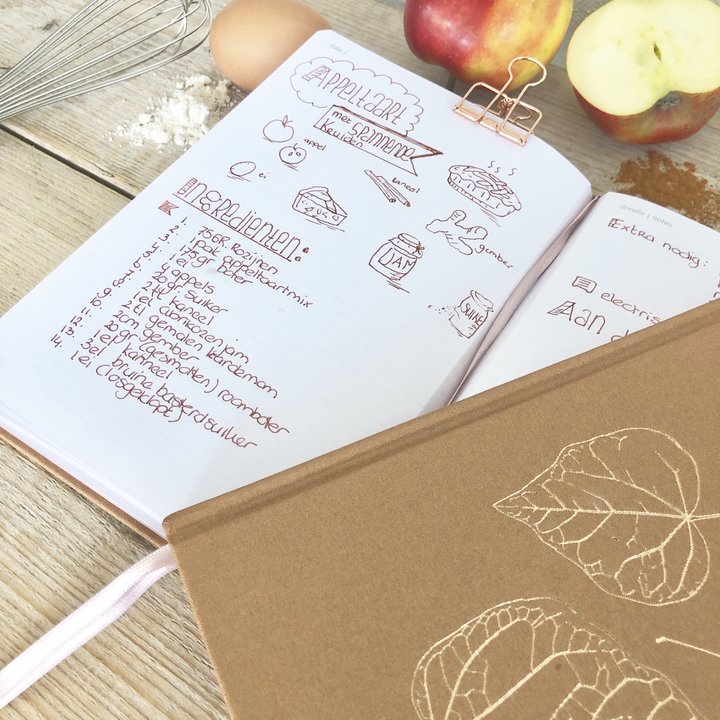 date |
Appeltaart
met spannende
kruiden
appel
ei
kaneel
gember
JAM
Suiker
Ingredienten:
1. 75gr. Rozijnen
2. 1 pak appeltaartmix
3. boter
4. 1 ei
5. 4 appels
6. suiker
7. kaneel
8. abrikozenjam
9. gemalen kardemom
10. gember
11. gr (gesmolten) roomboter
12. kaneel
13. 3 el bruine basterdsuiker
14. 1 ei (losgeklopt)
doodle | notes
Extra nodig:
electris
Aan d